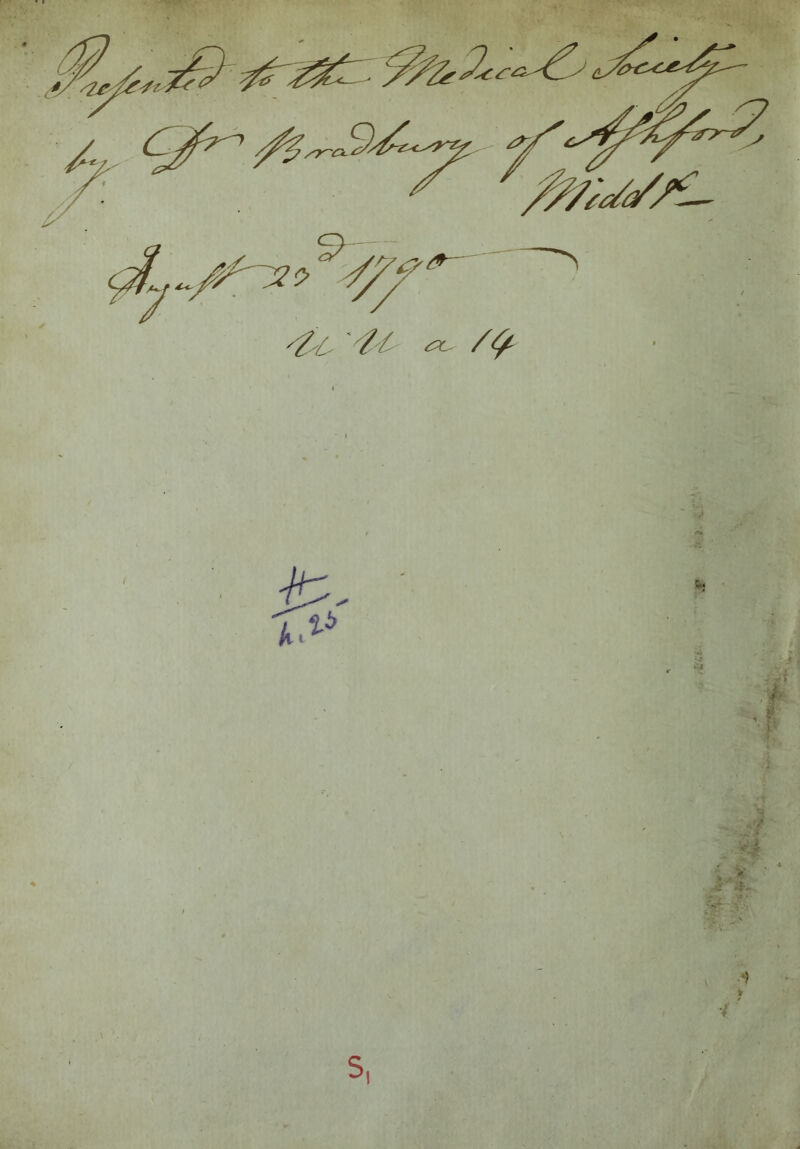 Presented to the Medical Society
by Dr Bradbury of Ashford,
Middx
August 23d 1790
U U a 14
H
h. 25
S1